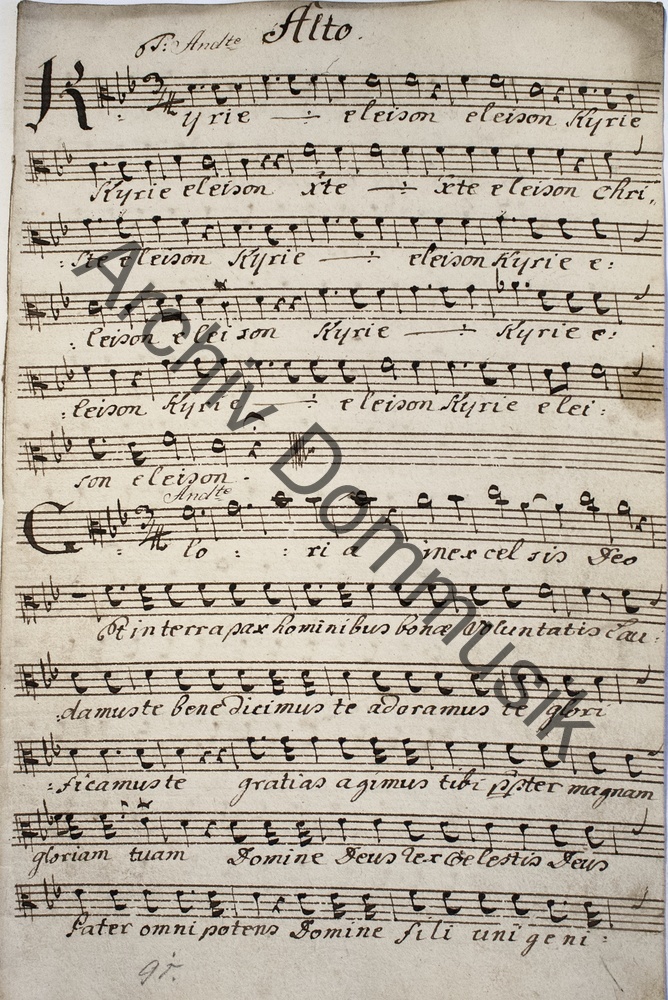 Alto.
T: Andte
Kyrie eleison eleison Kyrie
Kyrie eleison xte xte eleison Chri,
: ste eleison Kyrie eleison Kyrie e:
: leison eleison Kyrie Kyrie e:
: leison Kyrie eleison Kyrie elei:
son eleison.
Andte
Glo : : ria in excelsis Deo
Et in terra pax hominibus bonæ Voluntatis Lau:
:damus te benedicimus te adoramus te glori
:ficamus te gratias agimus tibi ppter magnam
gloriam tuam Domine Deus rex Cœlestis Deus
Pater omnipotens Domine fili unigeni:
Archiv Dommusik